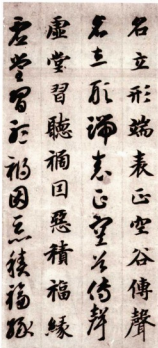 名立形端表正空谷傳聲
名立形端表正空谷傳聲
虛堂習聽禍囙惡積福緣
虛堂習聽禍因惡積福緣